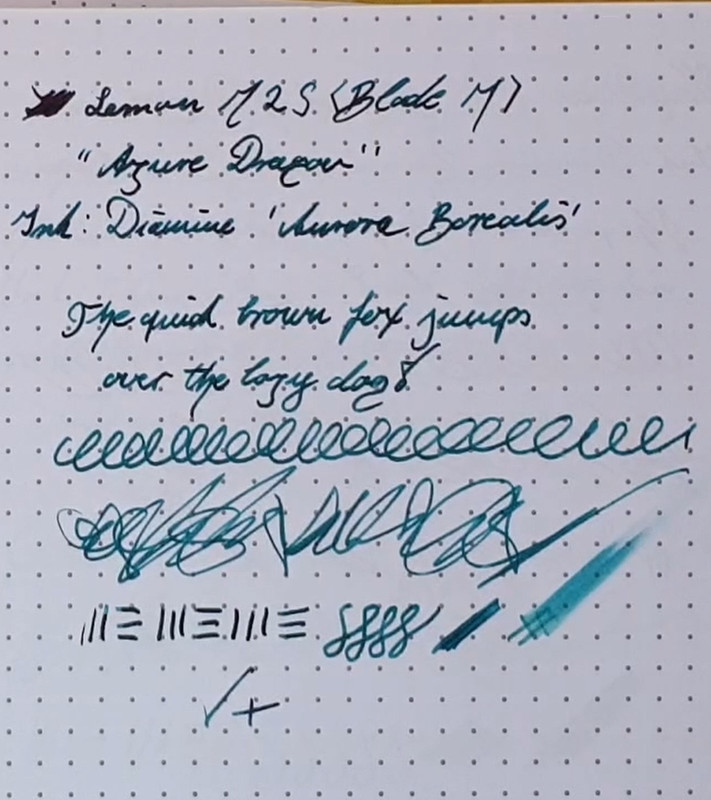 Leman M2S (Blade M)
"Azure Dragon"
Ink: Diamine 'Aurora Borealis'
The quick brown fox jumps
over the lazy dog